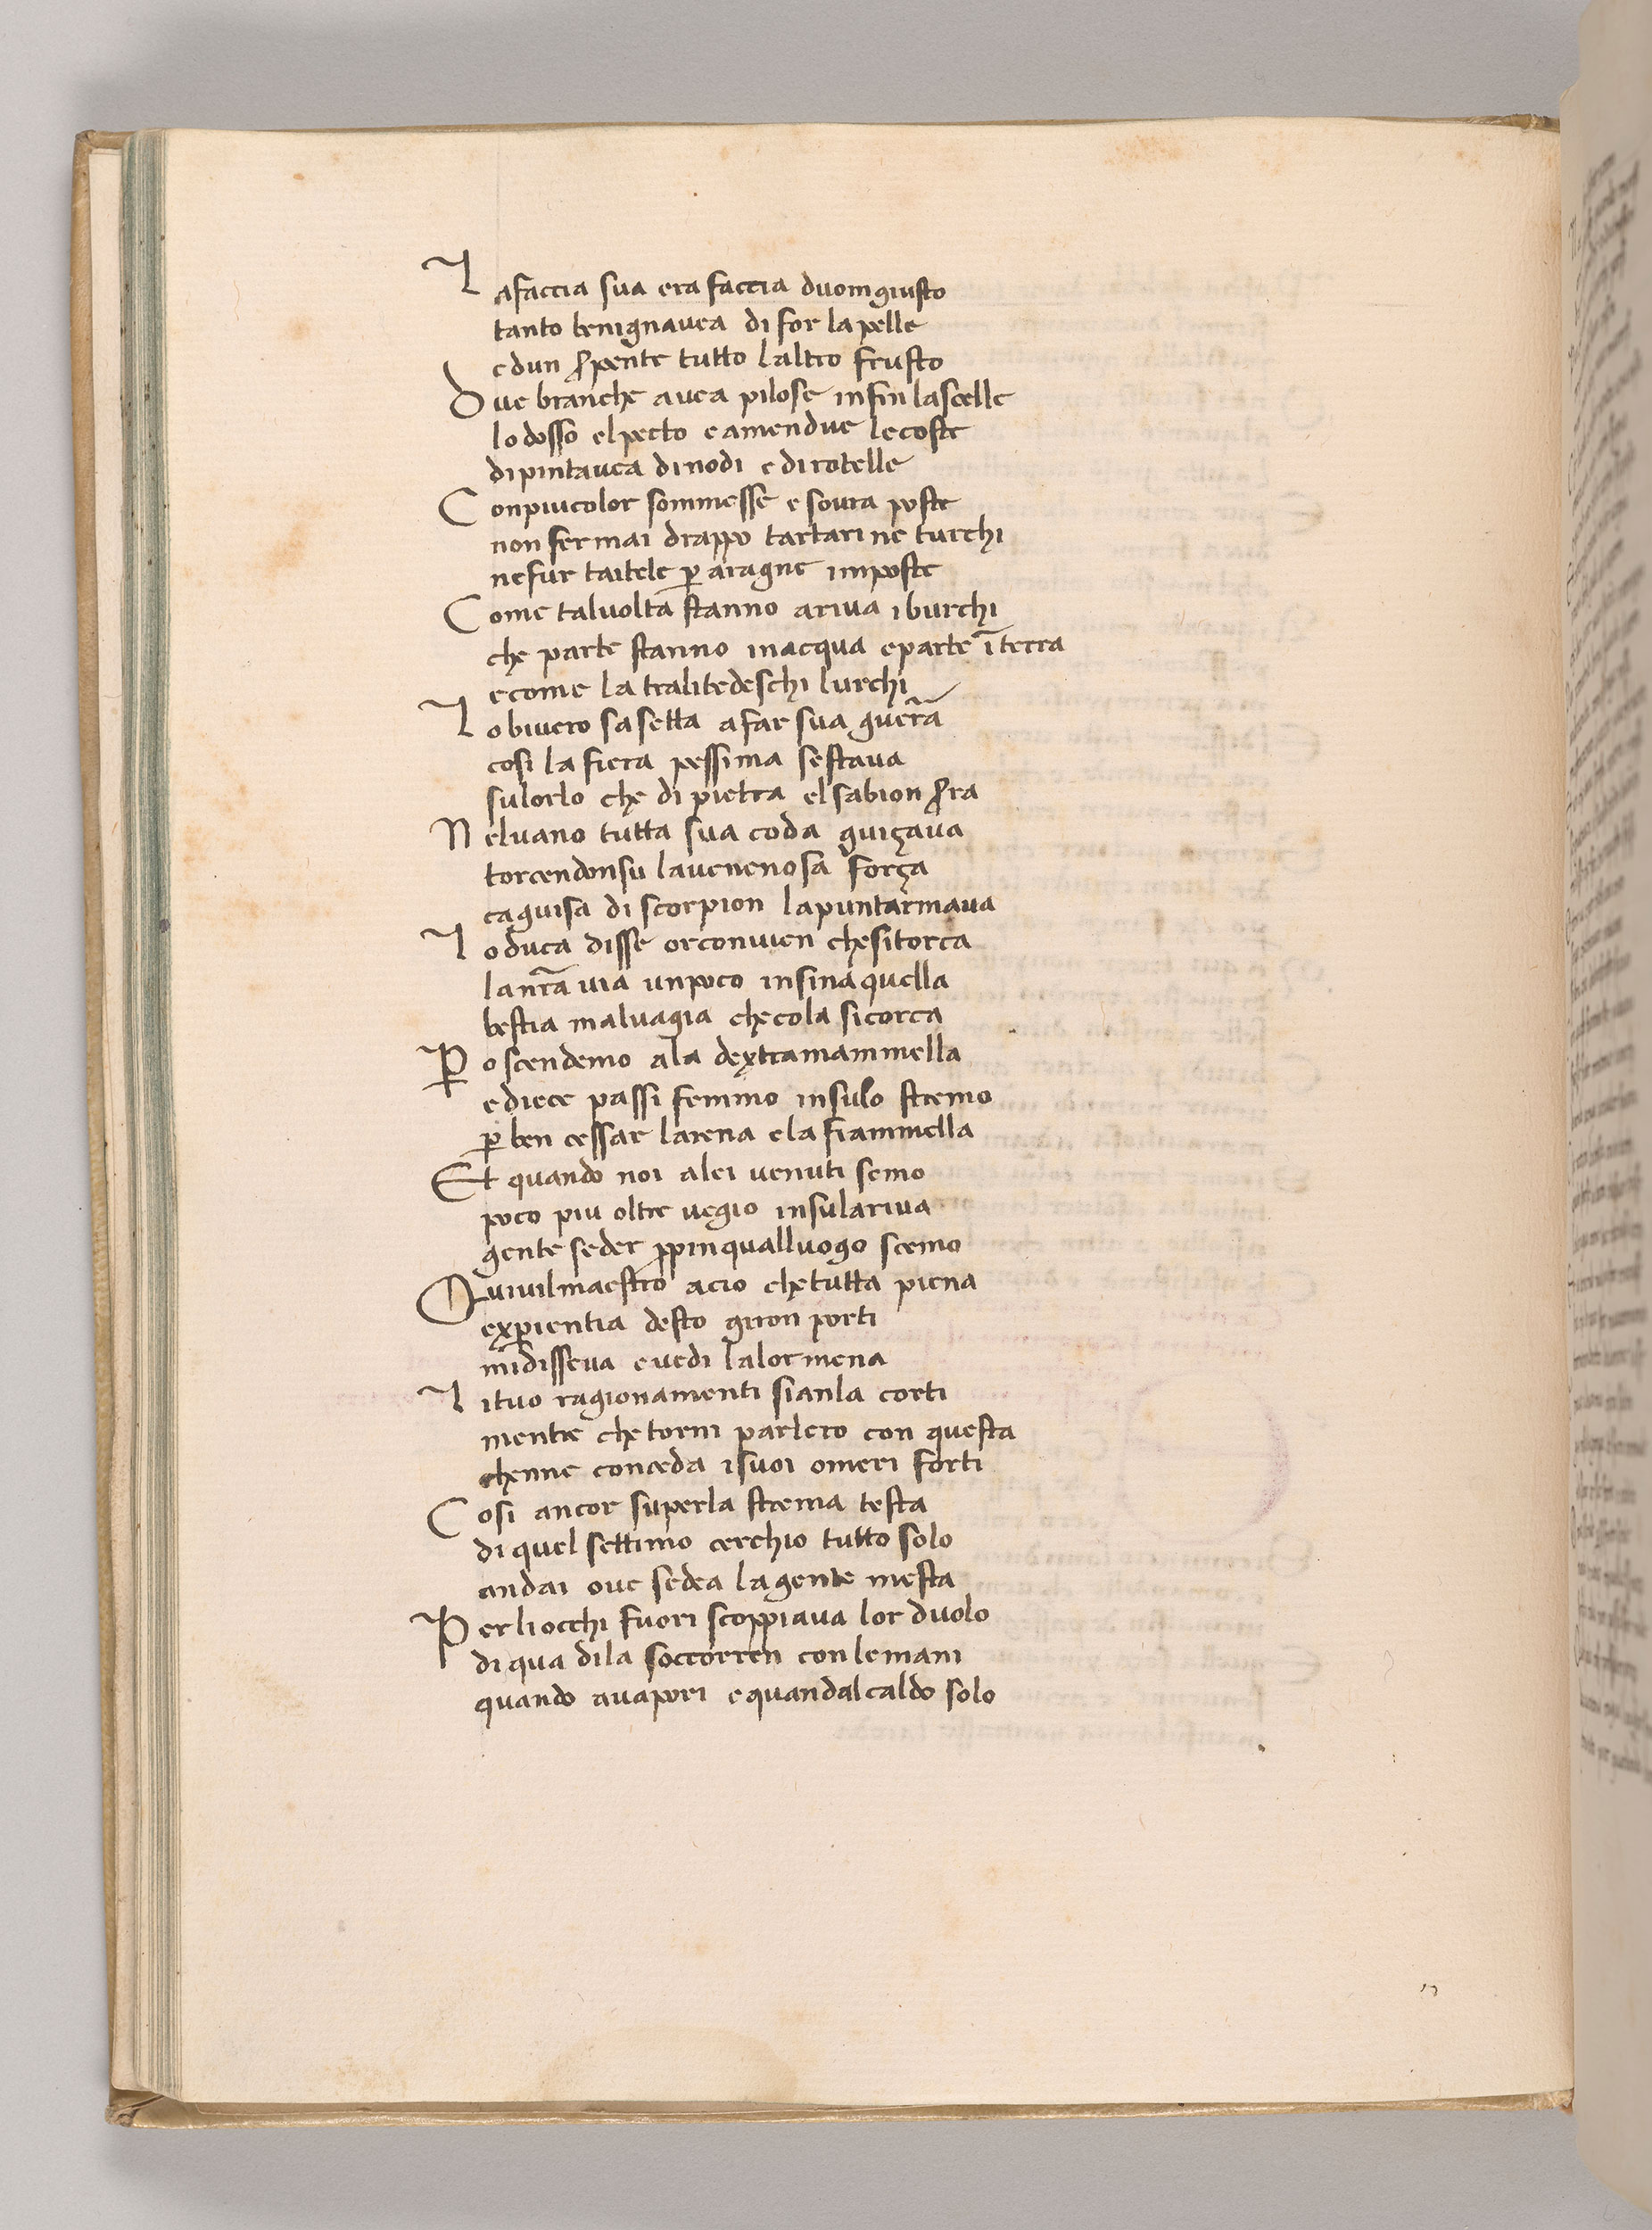 Lafaccia sua era faccia duomgiusto
tanto benignavea di for lapelle
edun s̄pente tutto laltro frusto
Due branche avea pilose infin lascelle
lo dosso elpecto e amendue lecoste
dipintavea dinodi e dirotelle
Conpiucolor sommesse e sovra poste
non fer mai drappo tartari ne turchi
nefur taitele p̱ aragne imposte
Come talvolta stanno ariva iburchi
che parte stanno inacqua eparte ī terra
ecome la tralitedeschi lurchi
Lo bivero sasetta afar sua guer̄a
cosi la fiera pessima sestava
sulorlo che di pietra elsabion s̄ra
Nelvano tutta sua coda guiçava
torcendonsu lavenenosa força
caguisa di scorpion lapuntarmava
Loduca disse orconvien chesitorca
lanr̄a via unpoco insina quella
bestia malvagia checola sicorca
P̱o scendemo ala dextramammella
ediece passi femmo insulo stremo
p̱ ben cessar larena ela fiammella
Et quando noi alei venuti semo
poco piu oltre vegio insulariva
gente seder p̱pinqualluogo scemo
Quivilmaestro acio chetutta piena
exp̱ientia desto giron porti
midisseva evedi lalormena
Lituo ragionamenti sianla corti
mentre chetorni parlero con questa
chenne conceda isuoi omeri forti
Cosi ancor superla strema testa
di quel settimo cerchio tutto solo
andai ove sedea lagente mesta
Perliocchi fuori scoppiava lor duolo
di qua dila soccorren conlemani
quando avapori equandalcaldo solo